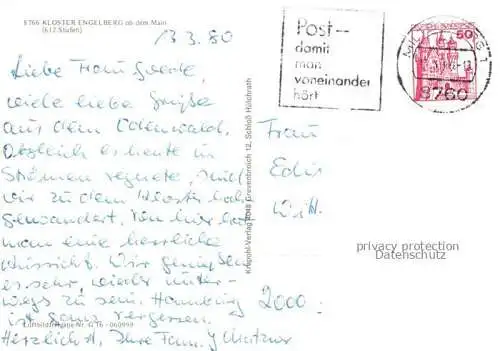 8766 KLOSTER ENGELBERG ob dem Main
(612 Stufen)
13 3. 80
Liebe Frau
viele liebe Grüße
aus dem Odenwald.
Obgleich es heute in
Strömen regnete, sind
wir zu dem Kloster hoch
gewandert. Von hier hat
man eine herrliche
Aussicht. Wir genießen
es sehr, wieder unter-
wegs zu sein. Hamburg
ist ganz vergessen.
Herzlichst, Ihre Fam.
Luftbildfreigabe Nr. G 16 - 060999
Krapohl-Verlag 4048 Grevenbroich 12, Schloß Hülchrath
Post--
damit
man
voneinander
hört
8760
50
Frau
Edis
Witt
2000
privacy protection
Datenschutz